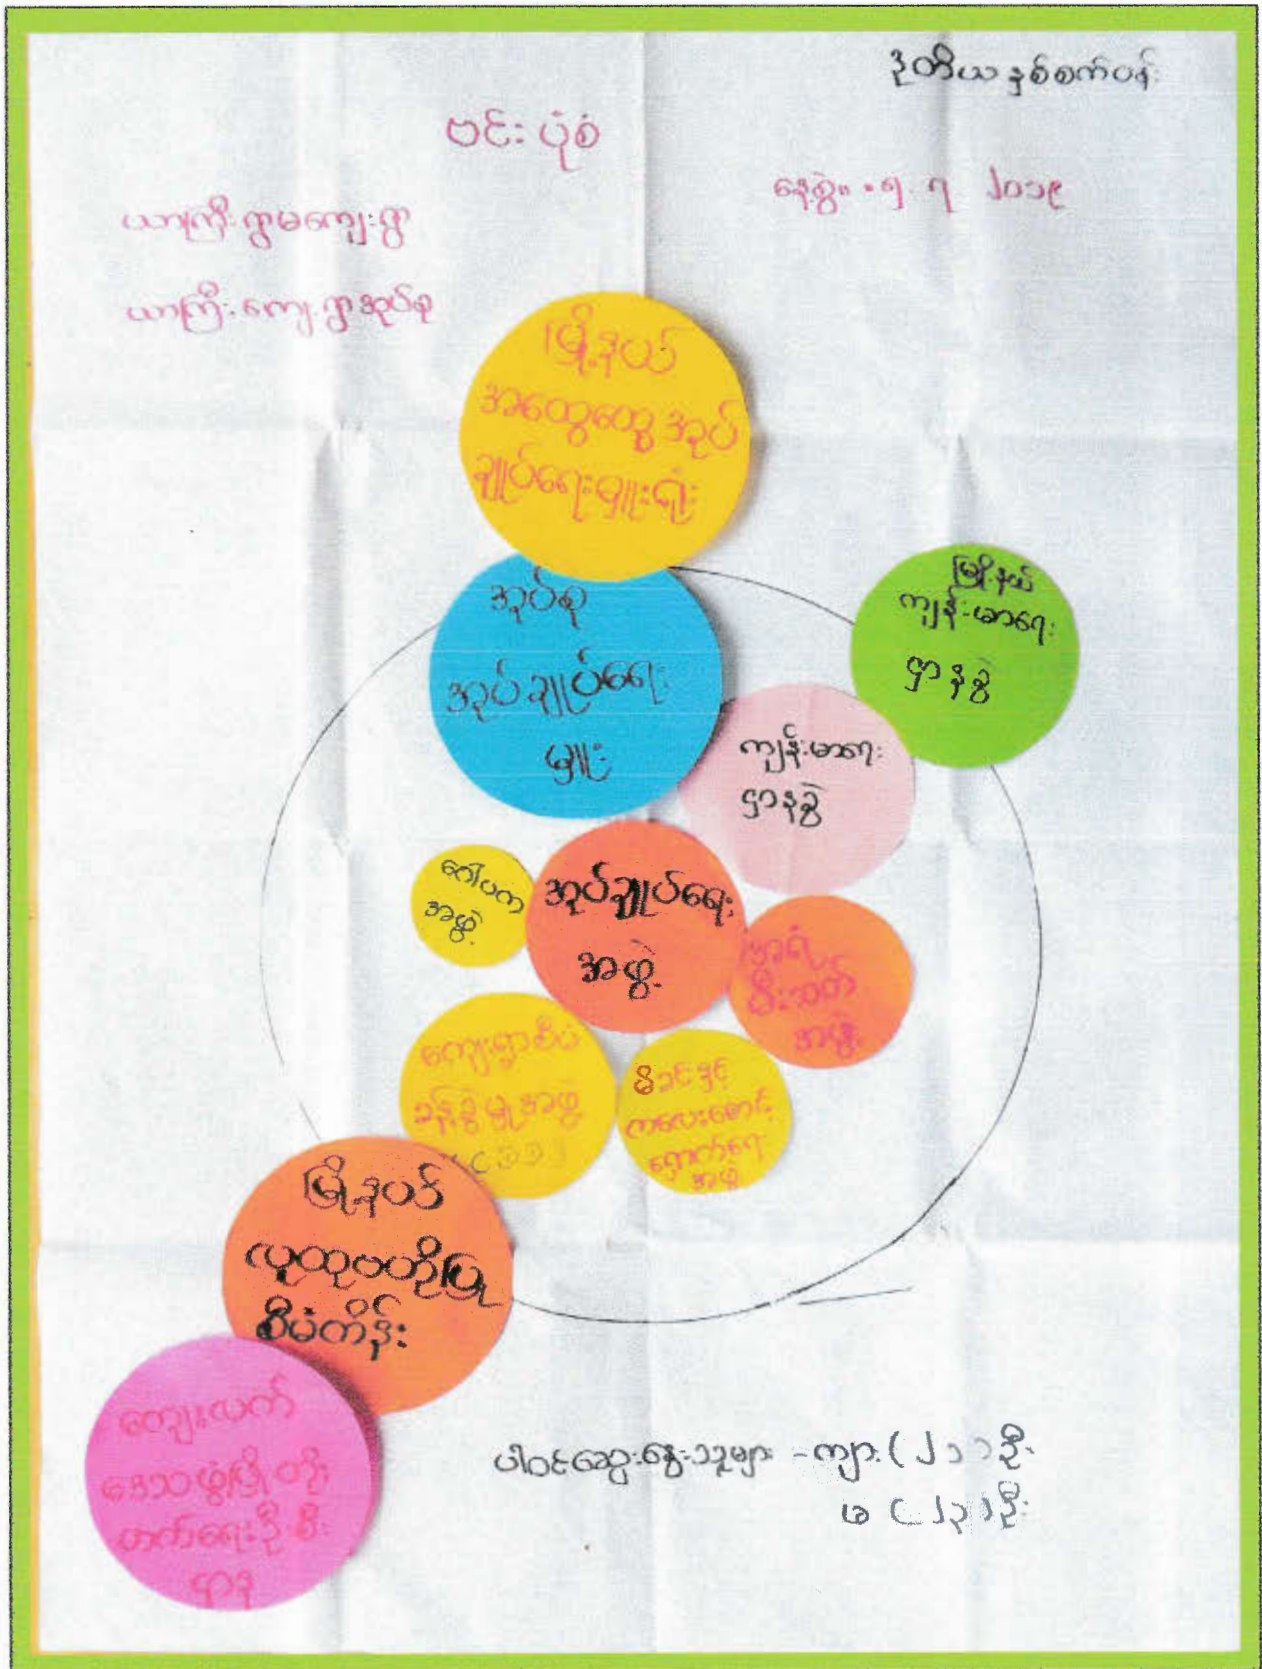 ဒုတိယ နှစ်စက်ဝန်း
ဗင်းပုံစံ
နေ့စွဲ။ ၅.၇ ၂၀၁၉
ယာကြီးရွာမကျေးရွာ
ယာကြီးကျေးရွာအုပ်စု
မြို့နယ်
အထွေထွေအုပ်
ချုပ်ရေးမှူးရုံး
အုပ်စု
အုပ်ချုပ်ရေး
မှူး
မြို့နယ်
ကျန်းမာရေး
ဌာနခွဲ
ကျန်းမာရေး
ဌာနခွဲ
ဂေါပက
အဖွဲ့
အုပ်ချုပ်ရေး
အဖွဲ့
အရံ
မီးသတ်
အဖွဲ့
ကျေးရွာစီမံ
ခန့်ခွဲမှုအဖွဲ့
မိခင်နှင့်
ကလေးစောင့်
ရှောက်ရေး
အဖွဲ့
မြို့နယ်
လူထုဗဟိုပြု
စီမံကိန်း
ကျေးလက်
ဒေသဖွံ့ဖြိုးတိုး
တက်ရေးဦးစီး
ဌာန
ပါဝင်ဆွေးနွေးသူများ - ကျား (၂၁) ဦး
မ (၂၃) ဦး